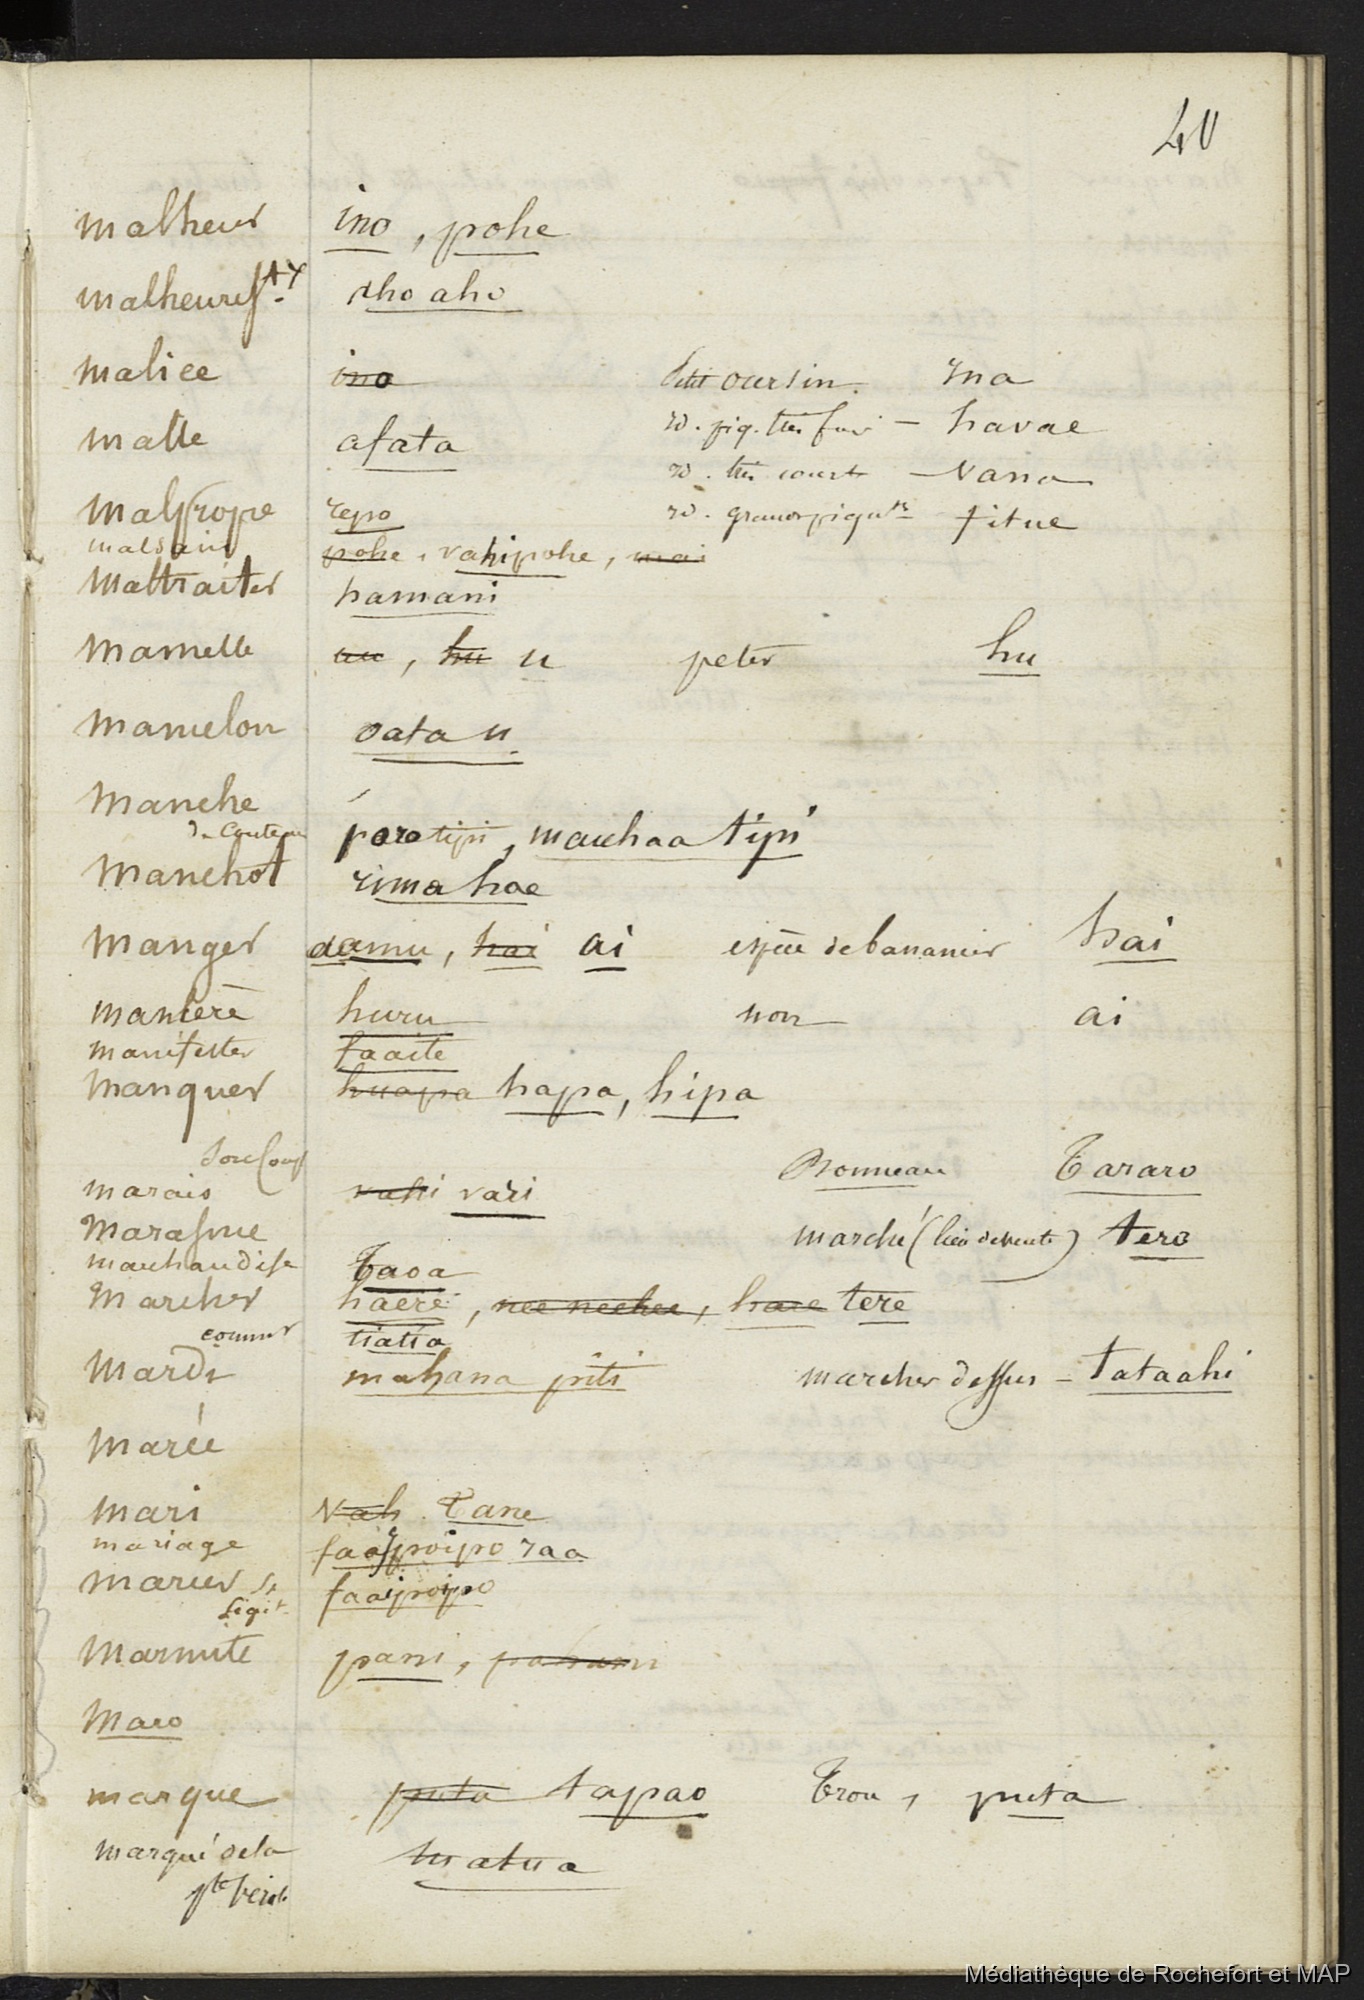 40
malheur ino, pohe
malheures.t aho aho
malice ino Petit oursin. ina
malle afata id. piq. très fin - havae
id. très court - vana
malpropre repo id. grands piqu.ts titue
malsain pohe, vahipohe, mai
maltraiter hamani
mamelle uu, hu u peter hu
mamelon oata u
manche
de couteau paro tipi, mauhaa tipi
manchot rima hae
manger aamu, hai ai espèce de bananier hai
manière huru non ai
manifester faaite
manquer huapa hapa, hipa
Ponneau Tararo
marais vahi vari
marasme marché (lieu de vente) tero
marchandise Taoa
marcher haere, nee neehee, haere tere
comme tiatia
mardi mahana piti marcher dessus - tataahi
marée
mari vah Tane
mariage faaipoipo raa
marier se faaipoipo
légit.
marmite pani,
maro
marque puta tapao Trou, puta
marqué de la matua
pte vérole
Médiathèque de Rochefort et MAP